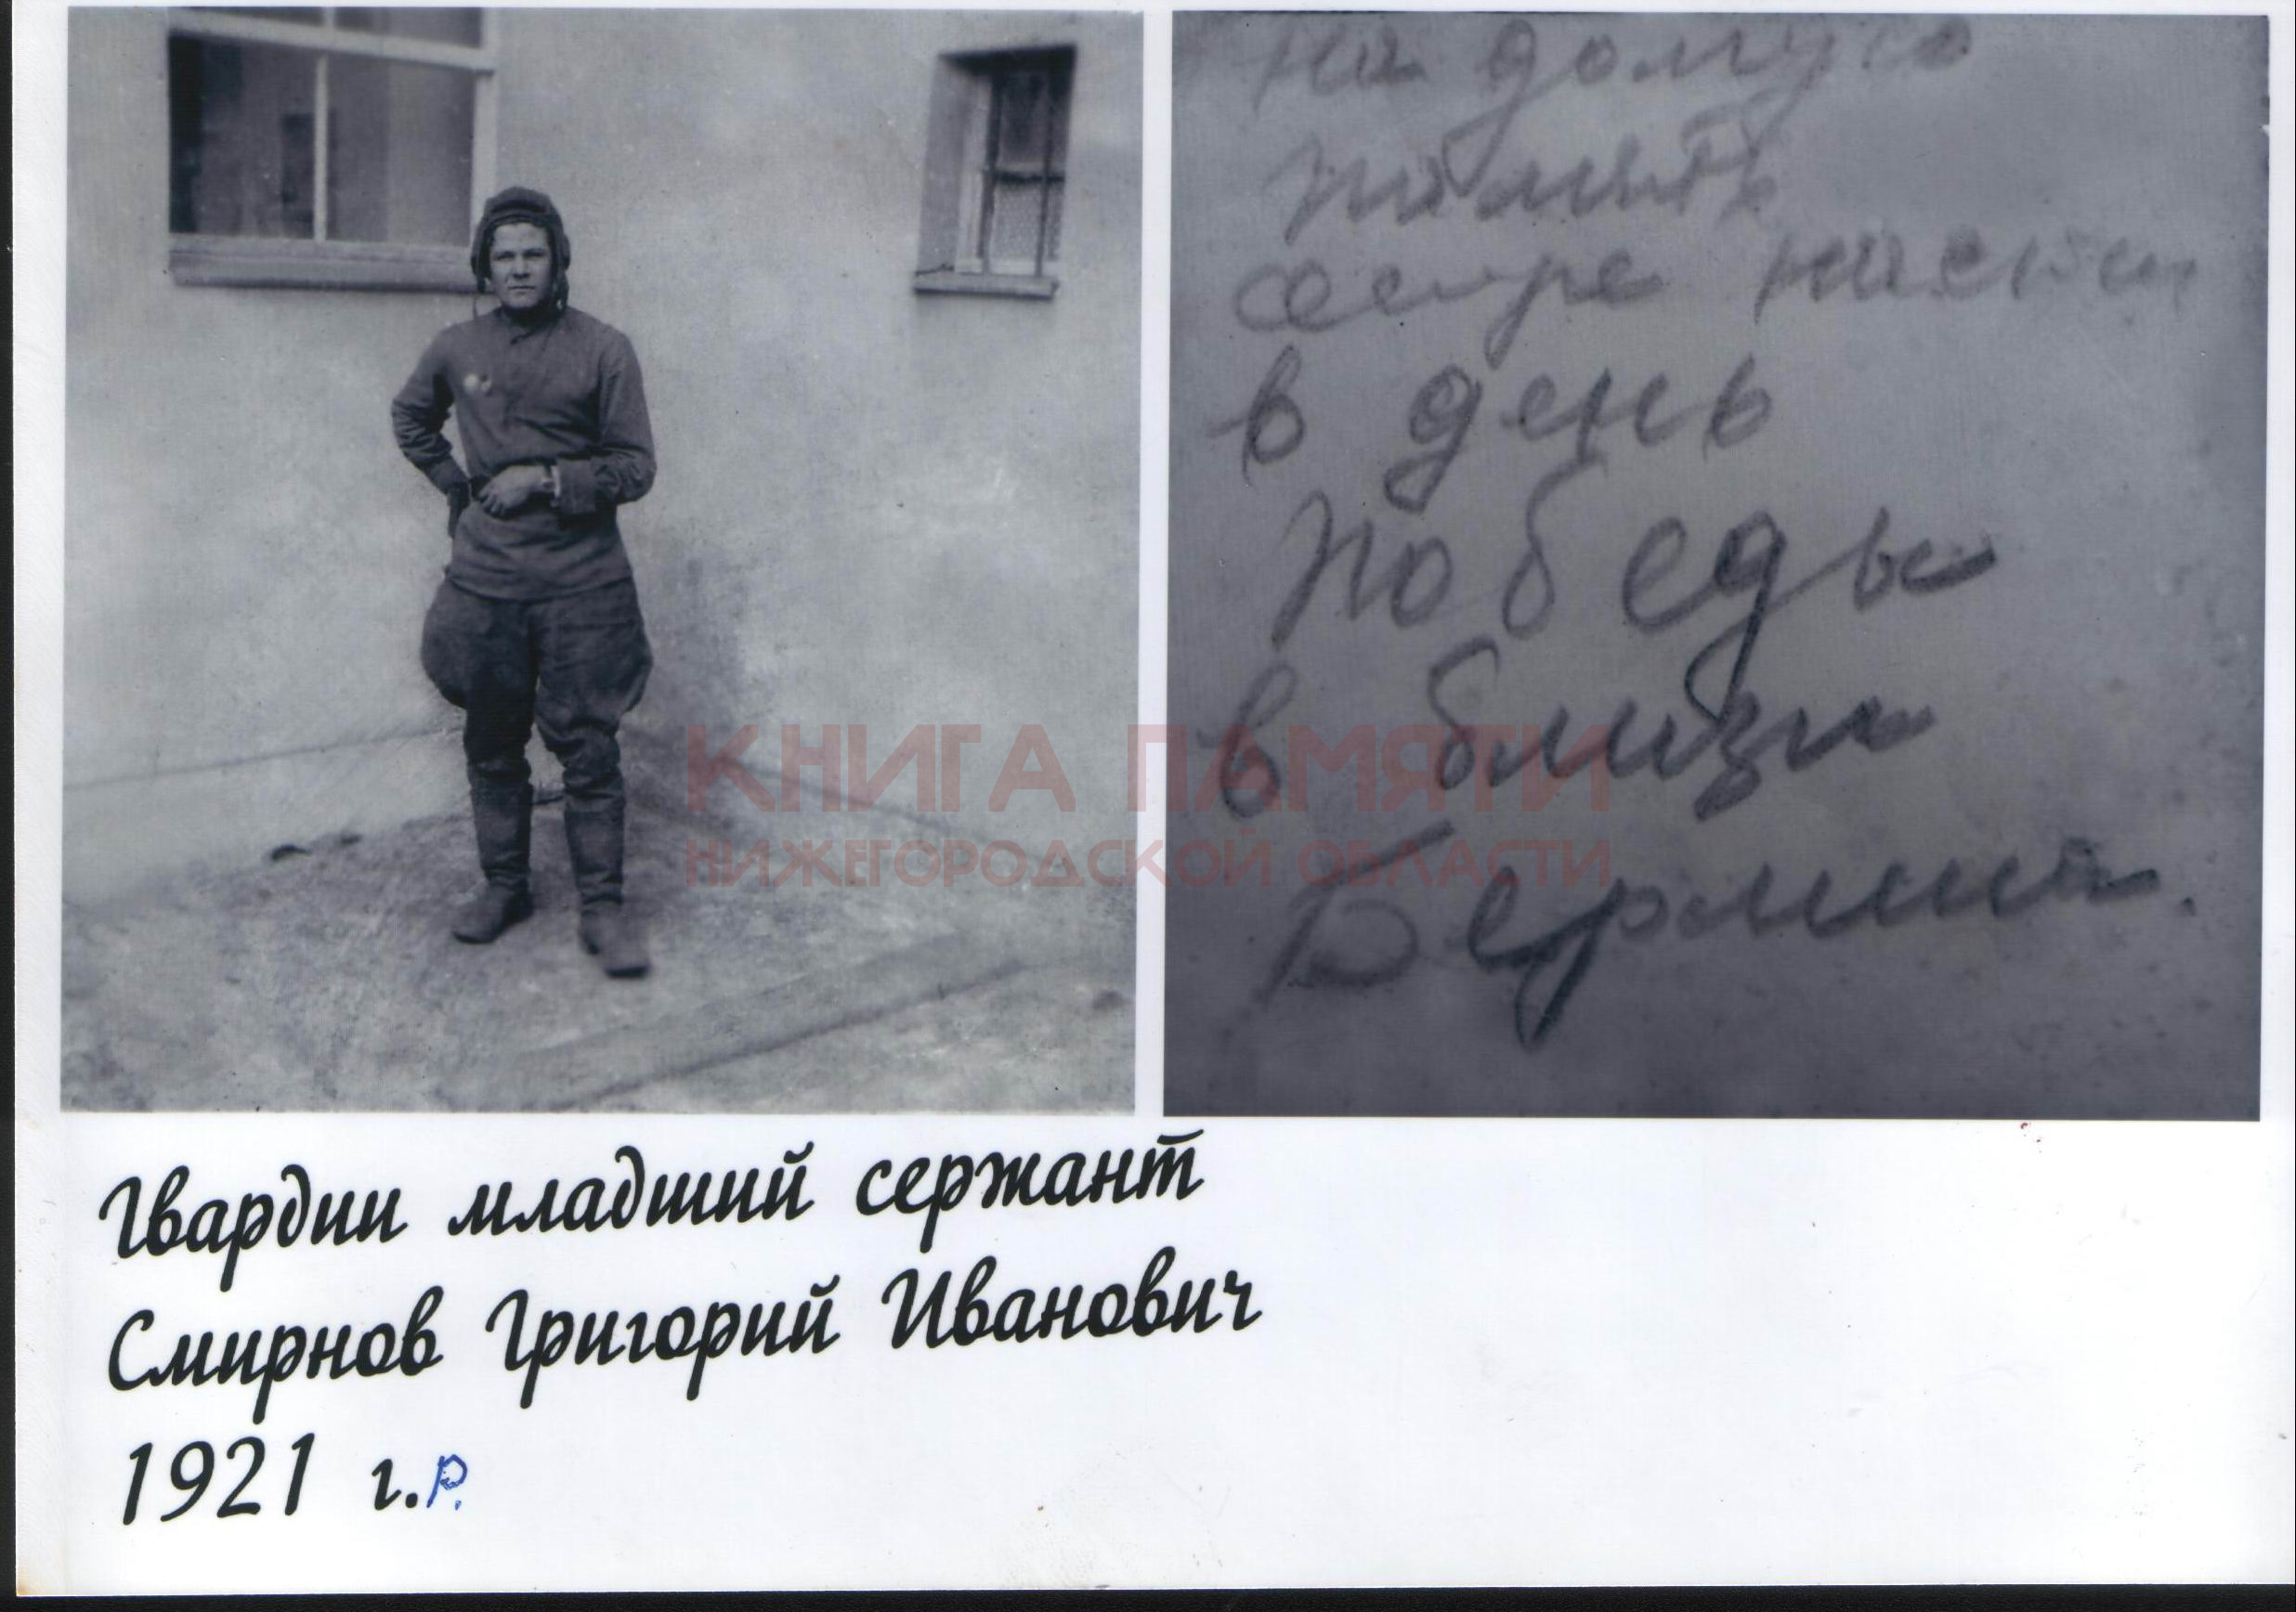 на долую
память
сестре насти
в день
победы
в близи
Берлина.
КНИГА ПАМЯТИ
НИЖЕГОРОДСКОЙ ОБЛАСТИ
Гвардии младший сержант
Смирнов Григорий Иванович
1921 г.р.